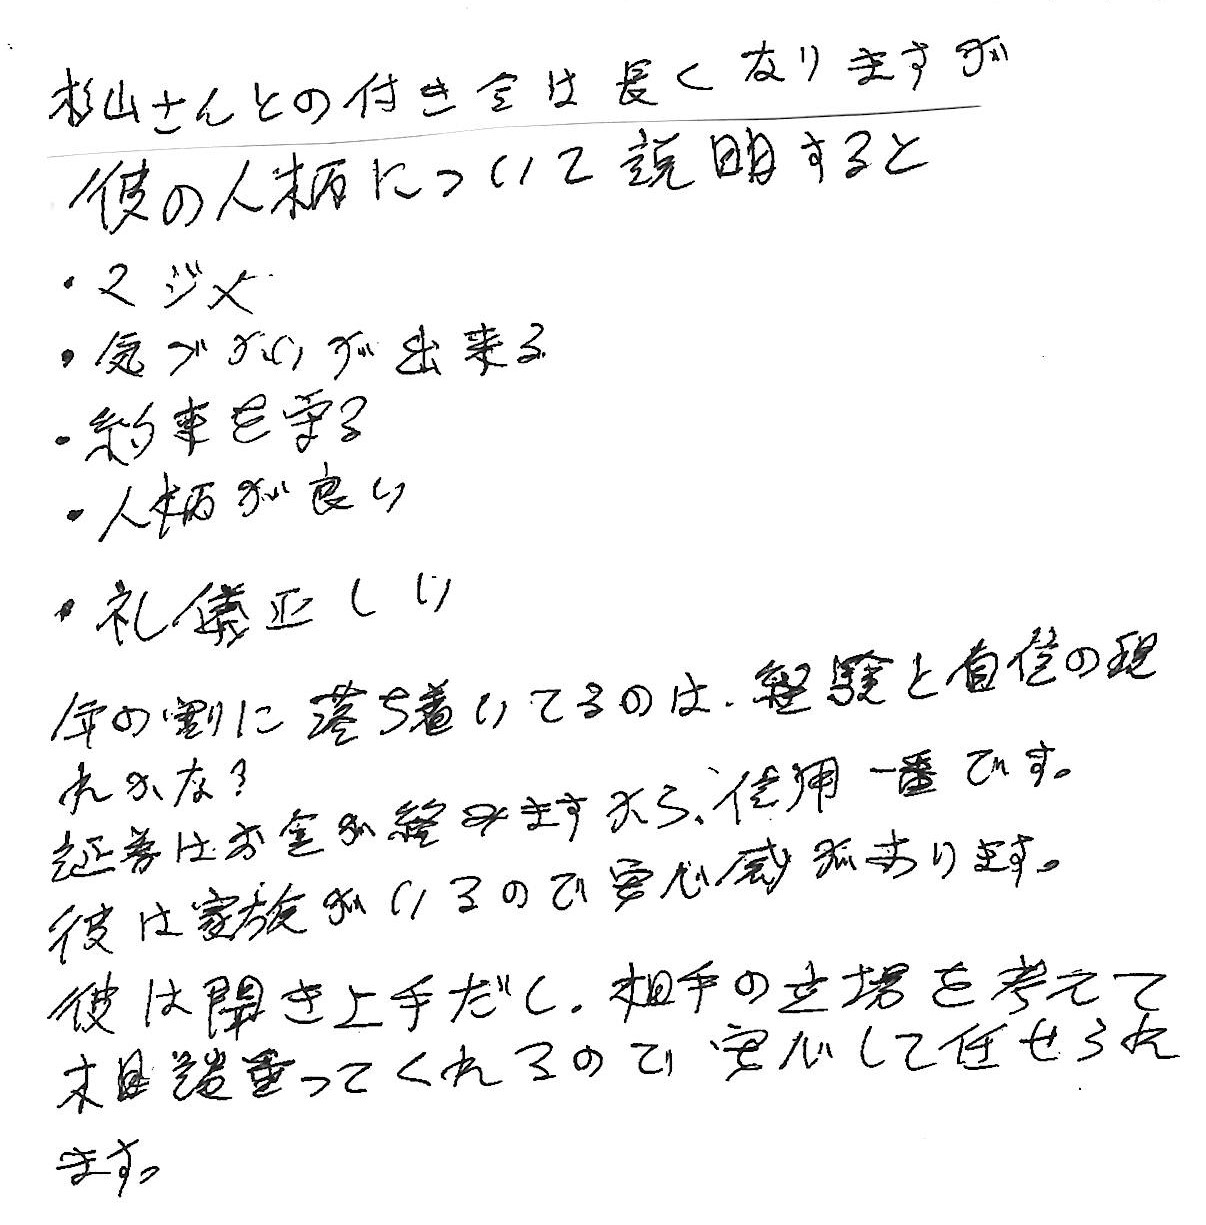 杉山さんとの付き合は長くなりますが
彼の人柄について説明すると
・マジメ
・気づかいが出来る
・約束を守る
・人柄が良い
・礼儀正しい
年の割に落ち着いてるのは、経験と自信の現
れかな?
証券はお金が絡みますから、信用一番です。
彼は家族がいるので安心感があります。
彼は聞き上手だし、相手の立場を考えて
相談乗ってくれるので安心して任せられ
ます。